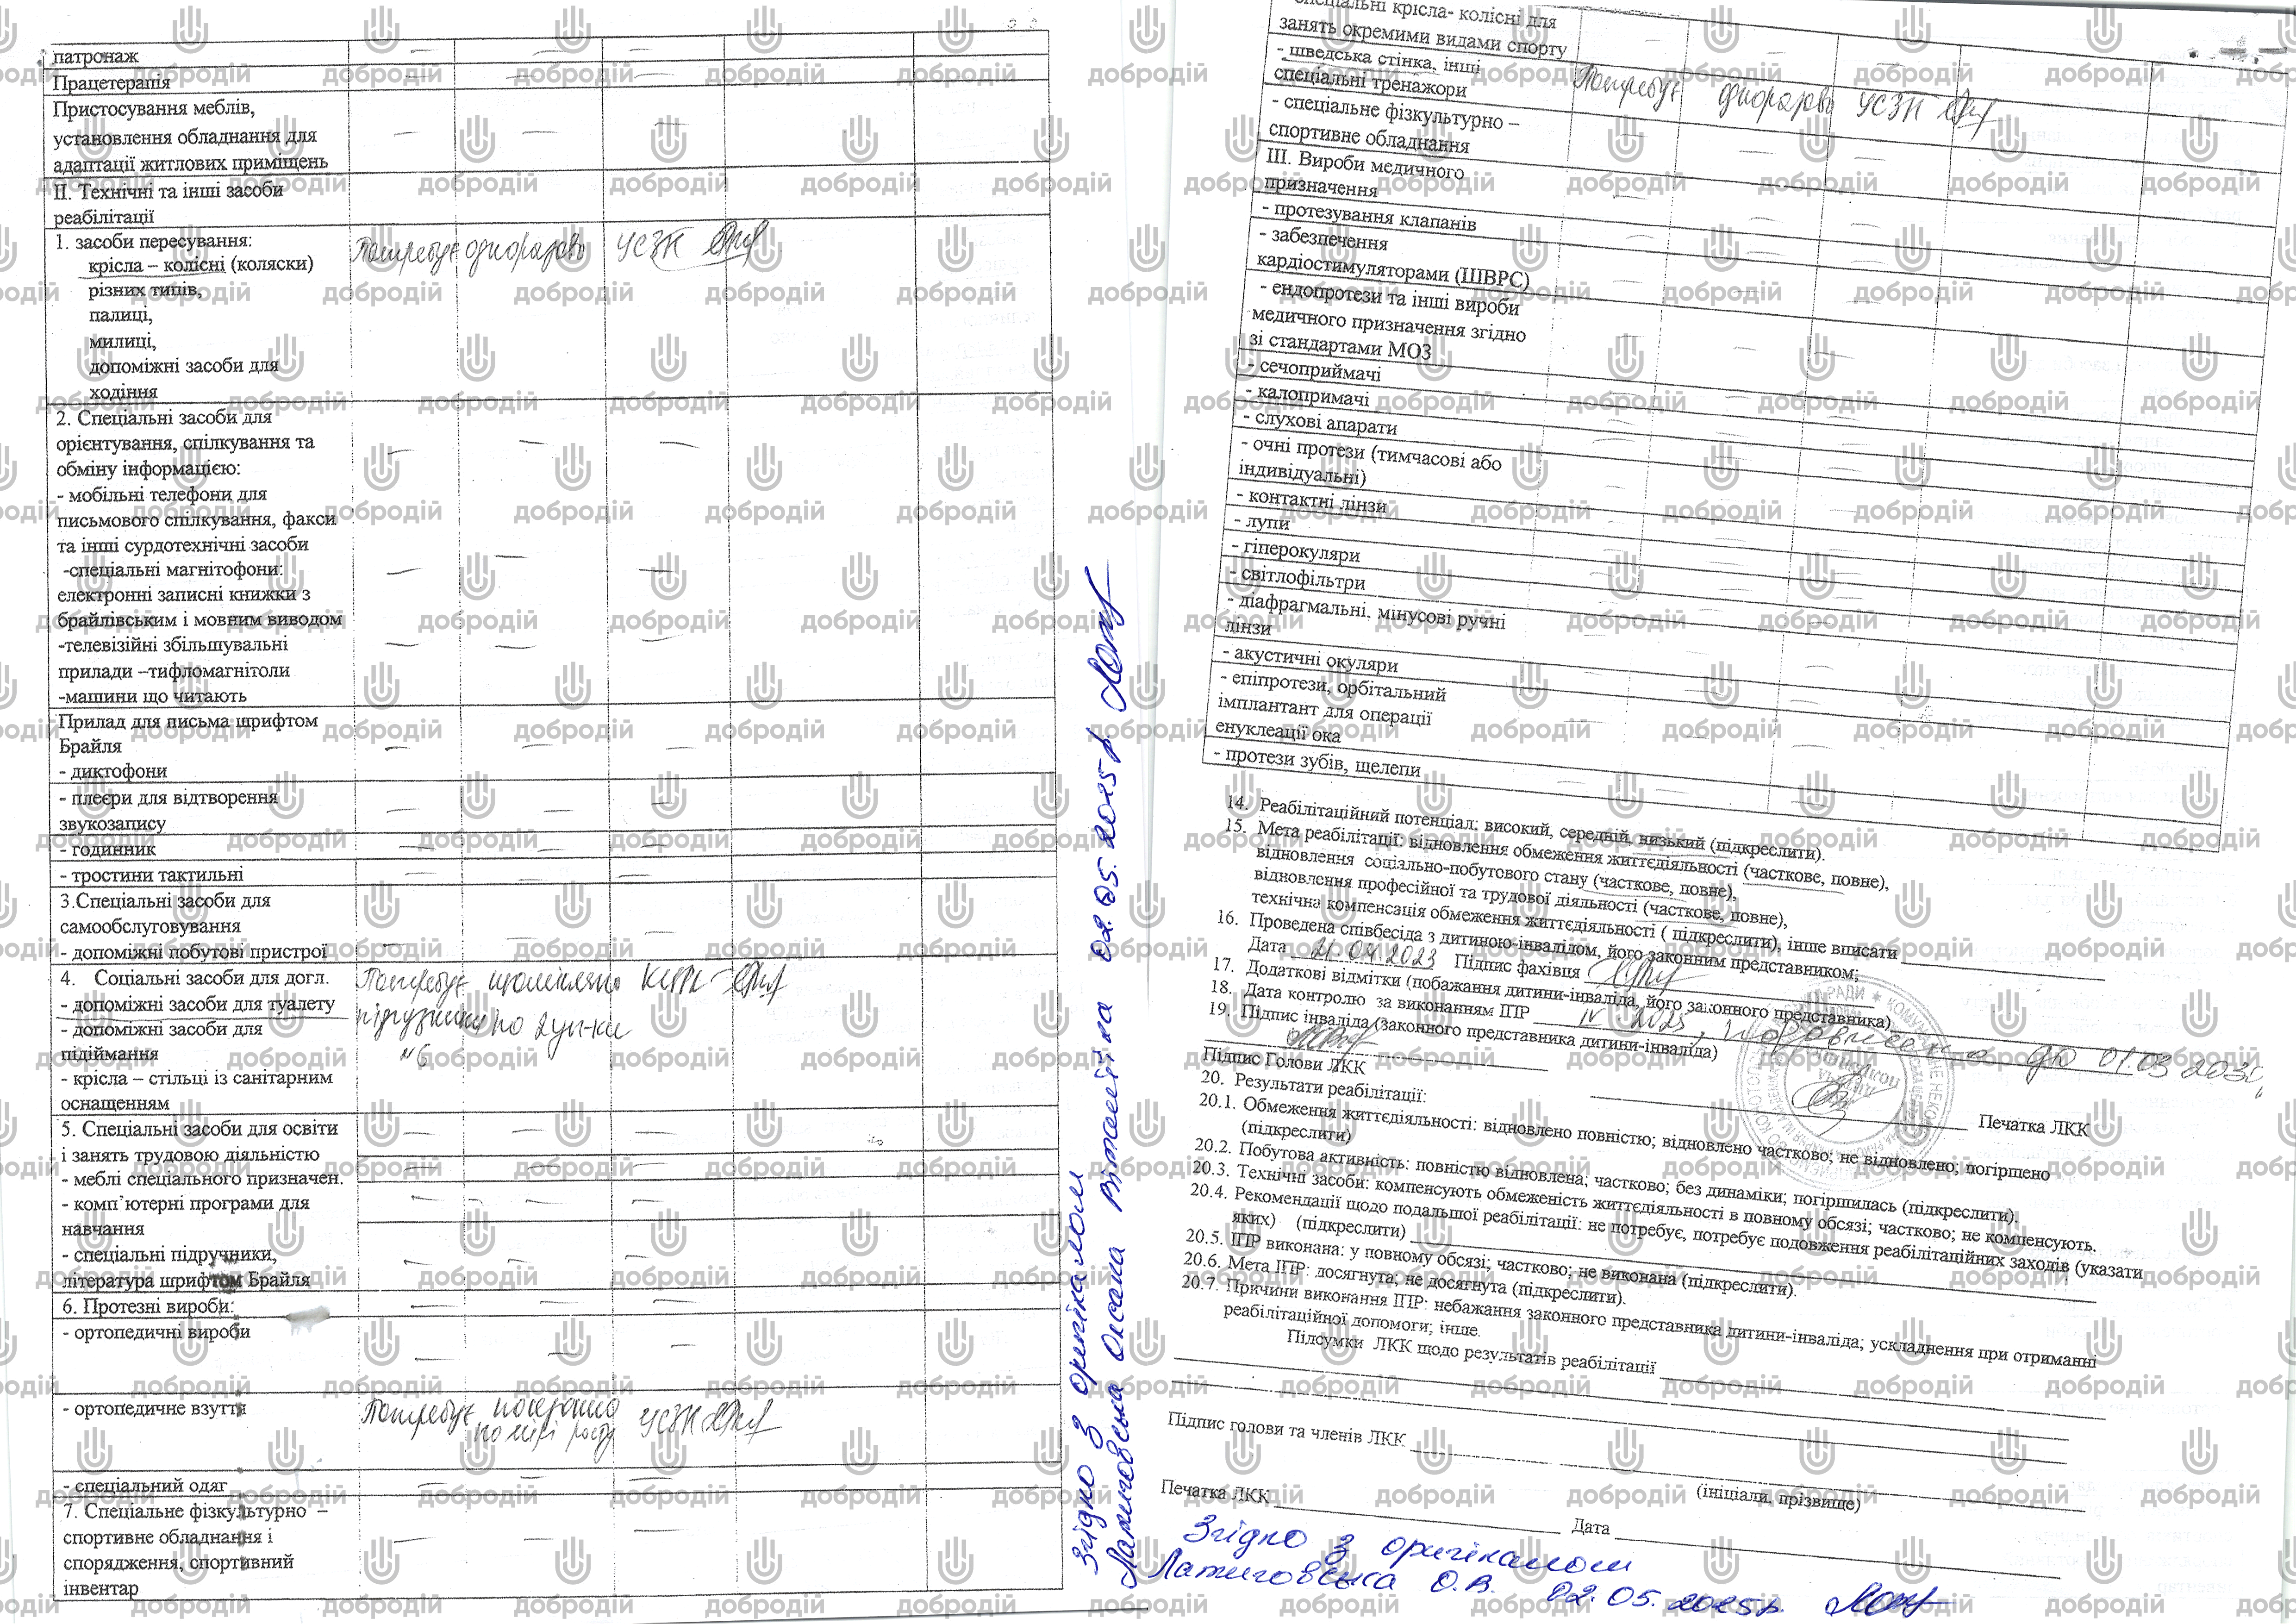 патронаж
Працетерапія
Пристосування меблів,
установлення обладнання для
адаптації житлових приміщень
ІІ. Технічні та інші засоби
реабілітації
1. засоби пересування: Потребує одноразово УСЗН
крісла – колісні (коляски)
різних типів,
палиці,
милиці,
допоміжні засоби для
ходіння
2. Спеціальні засоби для
орієнтування, спілкування та
обміну інформацією:
- мобільні телефони для
письмового спілкування, факси
та інші сурдотехнічні засоби
-спеціальні магнітофони:
електронні записні книжки з
брайлівським і мовним виводом
-телевізійні збільшувальні
прилади –тифломагнітоли
-машини що читають
Прилад для письма шрифтом
Брайля
- диктофони
- плеєри для відтворення
звукозапису
- годинник
- тростини тактильні
3.Спеціальні засоби для
самообслуговування
- допоміжні побутові пристрої
4. Соціальні засоби для догл. Потребує щомісячно
- допоміжні засоби для туалету
- допоміжні засоби для підгузники по 2уп-ки
підіймання №6
- крісла – стільці із санітарним
оснащенням
5. Спеціальні засоби для освіти
і занять трудовою діяльністю
- меблі спеціального призначен.
- комп’ютерні програми для
навчання
- спеціальні підручники,
література шрифтом Брайля
6. Протезні вироби:
- ортопедичні вироби
- ортопедичне взуття Потребує посезонно УСЗН
по мірі росту
- спеціальний одяг
7. Спеціальне фізкультурно –
спортивне обладнання і
спорядження, спортивний
інвентар
Згідно з оригіналом
Латиговська Оксана Віталіївна 02.05.2025р.
спеціальні крісла- колісні для
занять окремими видами спорту
- шведська стінка, інші
спеціальні тренажори Потребує одноразово УСЗН
- спеціальне фізкультурно –
спортивне обладнання
ІІІ. Вироби медичного
призначення
- протезування клапанів
- забезпечення
кардіостимуляторами (ШВРС)
- ендопротези та інші вироби
медичного призначення згідно
зі стандартами МОЗ
- сечоприймачі
- калопримачі
- слухові апарати
- очні протези (тимчасові або
індивідуальні)
- контактні лінзи
- лупи
- гіперокуляри
- світлофільтри
- діафрагмальні. мінусові ручні
лінзи
- акустичні окуляри
- епіпротези, орбітальний
імплантант для операції
енуклеації ока
- протези зубів, щелепи
14. Реабілітаційний потенціал: високий, середній, низький (підкреслити).
15. Мета реабілітації: відновлення обмеження життєдіяльності (часткове, повне),
відновлення соціально-побутового стану (часткове, повне),
відновлення професійної та трудової діяльності (часткове, повне),
технічна компенсація обмеження життєдіяльності ( підкреслити), інше вписати
16. Проведена співбесіда з дитиною-інвалідом, його законним представником;
Дата 21.04.2023 Підпис фахівця
17. Додаткові відмітки (побажання дитини-інваліда, його законного представника)
18. Дата контролю за виконанням ІПР IV 2025, до 01.03 2030
19. Підпис інваліда (законного представника дитини-інваліда)
Підпис Голови ЛКК Печатка ЛКК
20. Результати реабілітації:
20.1. Обмеження життєдіяльності: відновлено повністю; відновлено частково; не відновлено; погіршено
(підкреслити)
20.2. Побутова активність: повністю відновлена; частково; без динаміки; погіршилась (підкреслити).
20.3. Технічні засоби: компенсують обмеженість життєдіяльності в повному обсязі; частково; не компенсують.
20.4. Рекомендації щодо подальшої реабілітації: не потребує, потребує подовження реабілітаційних заходів (указати
яких) (підкреслити)
20.5. ІПР виконана: у повному обсязі; частково; не виконана (підкреслити).
20.6. Мета ІПР: досягнута; не досягнута (підкреслити).
20.7. Причини виконання ІПР: небажання законного представника дитини-інваліда; ускладнення при отриманні
реабілітаційної допомоги; інше.
Підсумки ЛКК щодо результатів реабілітації
Підпис голови та членів ЛКК
(ініціали, прізвище)
Печатка ЛКК Дата
Згідно з оригіналом
Латиговська О.В. 02.05.2025р.
добродій